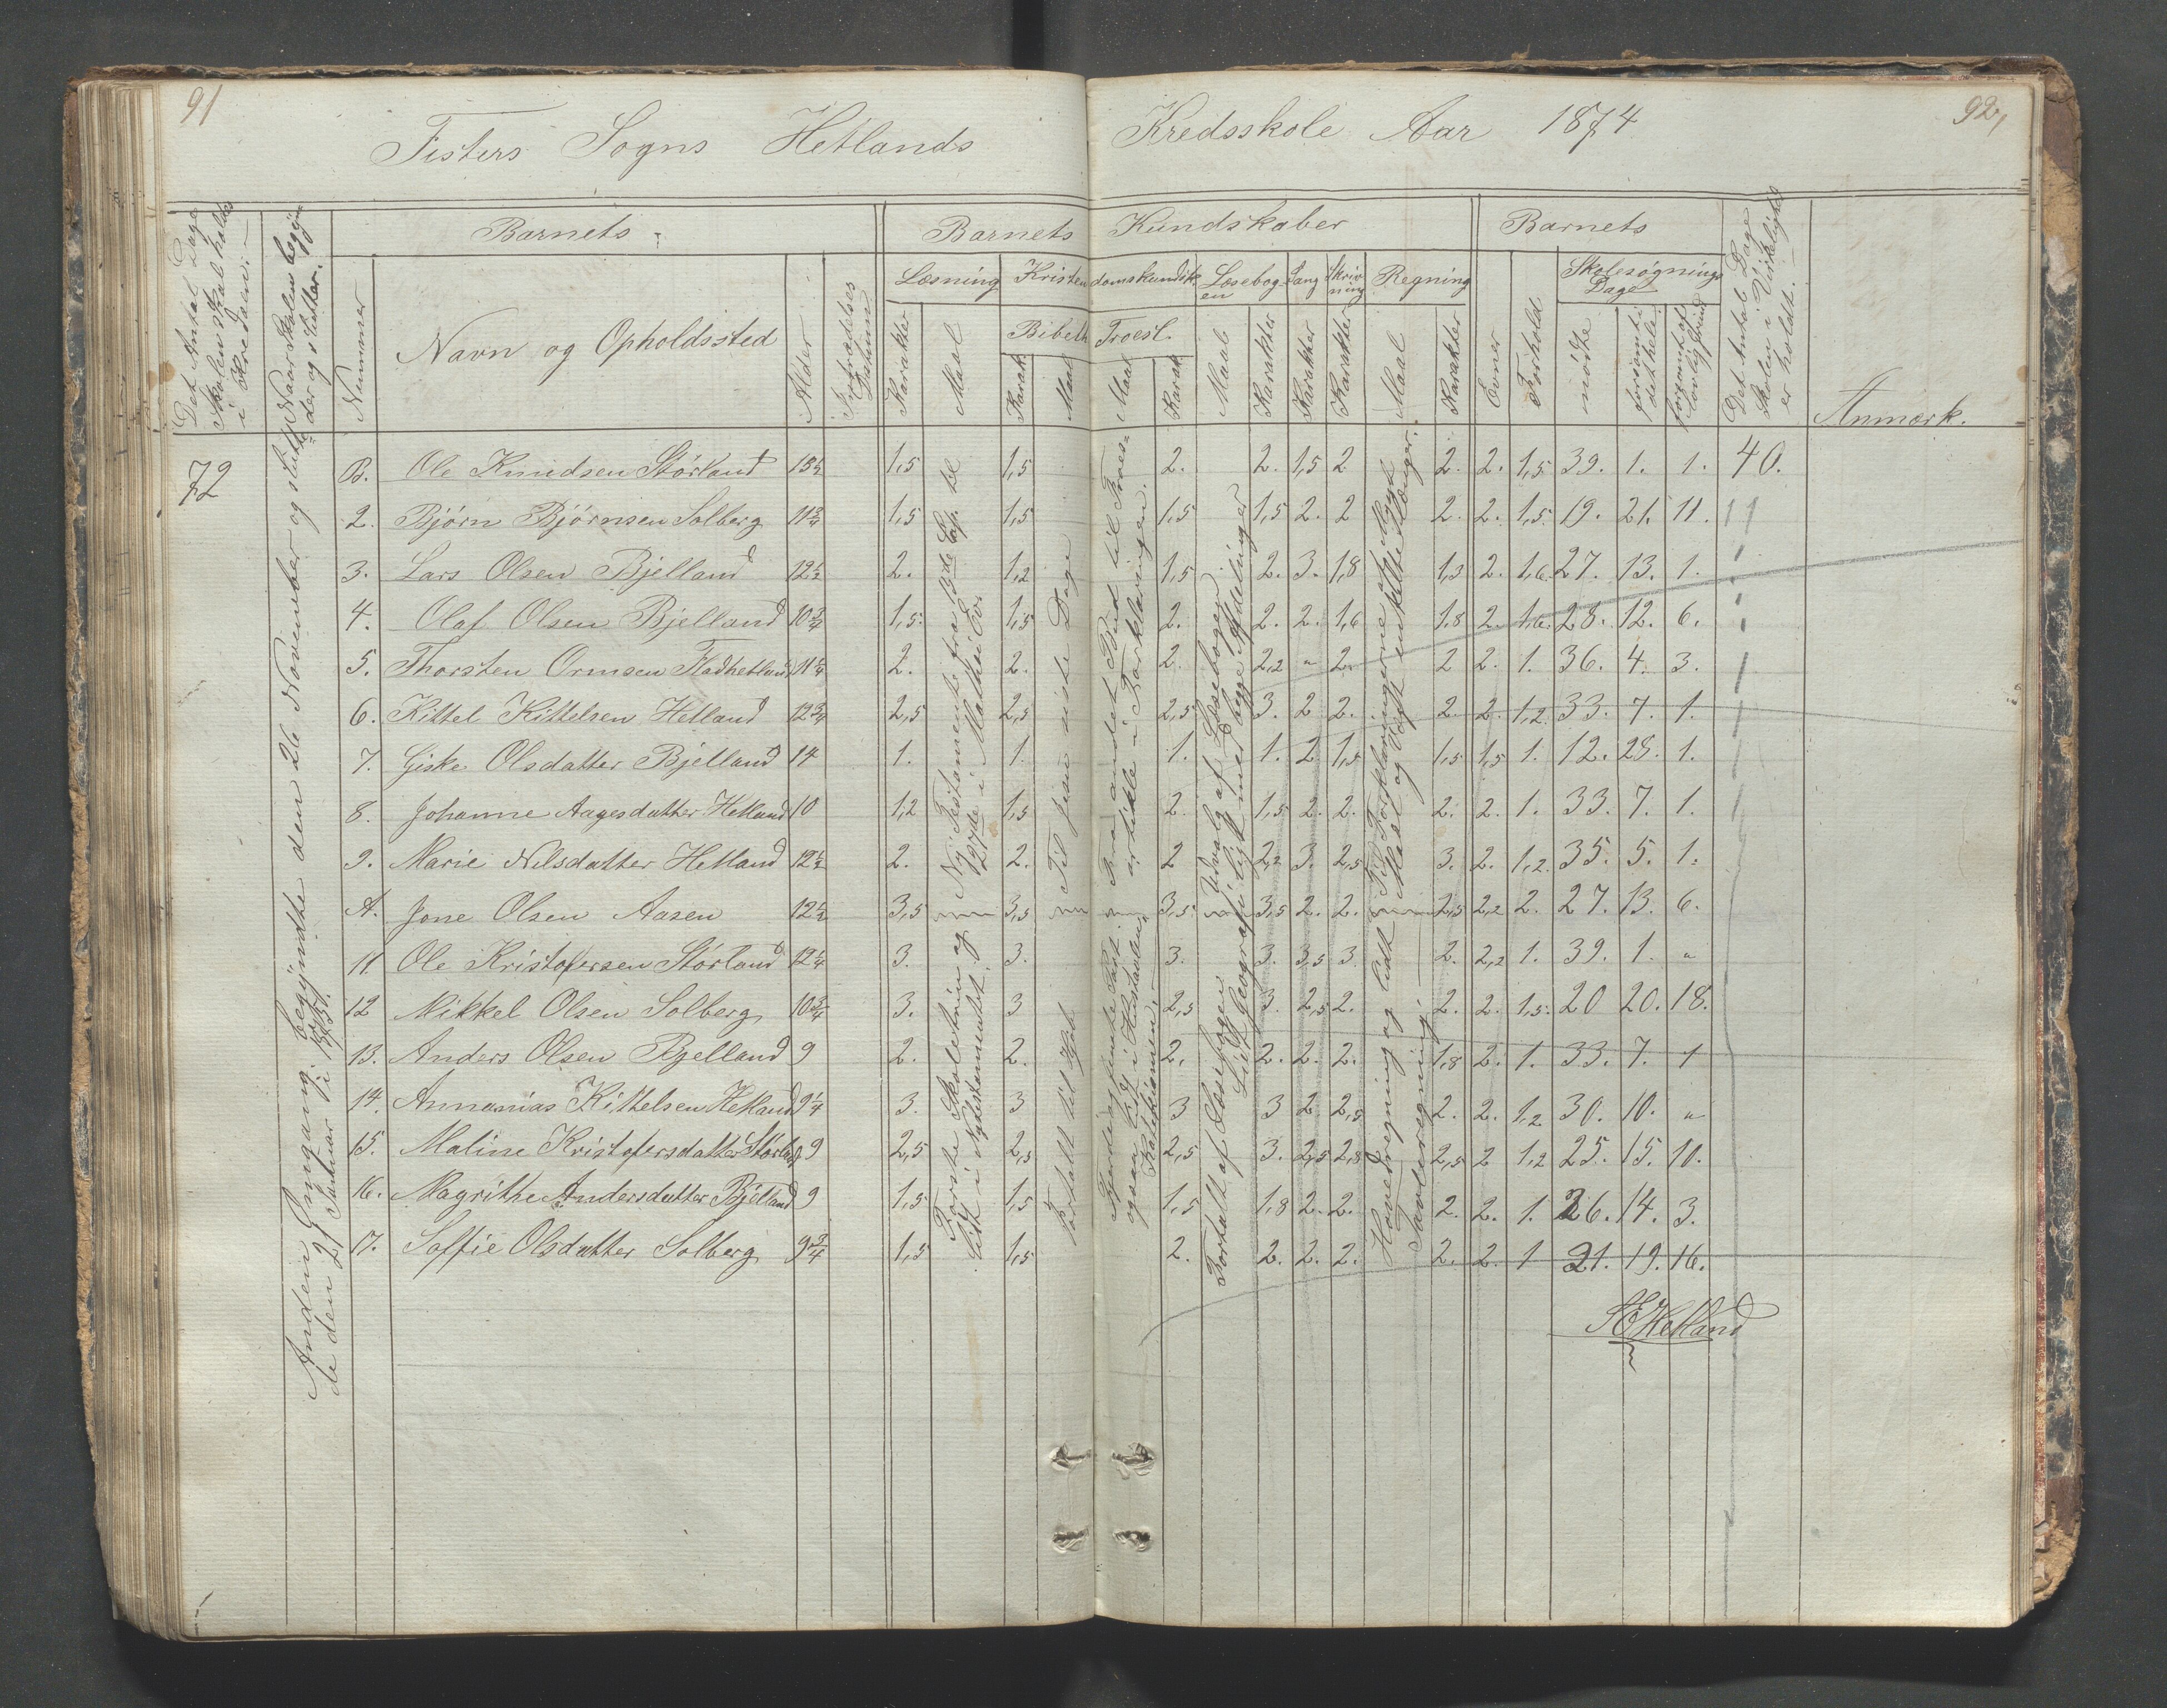 91
92,
Fisters Sogns Hetlands Kredsskole Aar 1874
Det Antal Dage Skolen skal holdes i Kredsen.
Naar Skolen begynder og slutter.
Barnets
Nummer
Navn og Opholdssted
Alder
Indtrædelses Datum
Barnets Kundskaber
Læsning
Karakter
Maal
Kristendomskundsk.
Bibelh
Karak
Maal
Troesl.
Maal
Karak
Læsebogen
Maal
Karakter
Sang
Karakter
Skrivning
Karakter
Regning
Maal
Karakter
Barnets
Evner
Forhold
Skolesøgnings Dage
mødte
forsømt i det hele.
forsømt af lovlig Grund
Det Antal Dage Skolen i Virkelighed er holdt.
Anmærk.
72
Anden Omgang begyndte den 26 November og sluttede den 21 Januar i 1875.
B. Ole Knudsen Størland 13½ 1,5 1,5 2. 2. 1,5 2 2. 2. 1,5 39. 1. 1. 40.
2. Bjørn Bjørnsen Solberg 11¾ 1,5 1,5 1,5 1,5 2. 2 2. 2. 1,5. 19. 21. 11. 11
3. Lars Olsen Bjelland 12½ 2. 1,2 1,5 2. 3. 1,8 1,3 2. 1,6. 27. 13. 1.
4. Olaf Olsen Bjelland 10¾ 1,5. 1,5 2. 2. 2. 1,6 1.8 2. 1,6. 28. 12. 6.
5. Thorsten Ormsen Fladhetland 11¼ 2. 2. 2. 2,2 " 2. 2 2. 1. 36. 4. 3.
6. Kittel Kittelsen Hetland 12¾ 2,5 2,5 2,5. 3. 2 2. 2. 2. 1,2. 33. 7. 1.
7. Giske Olsdatter Bjelland 14 1. 1. 1. 1. 2 1,5 1,5 1,5 1. 12. 28. 1.
8. Johanne Aagesdatter Hetland 10 1,2 1,5 2. 1,5 2. 2. 2. 2. 1. 33. 7. 1.
9. Marie Nilsdatter Hetland 12½ 2. 2. 2 2,2 3. 2,5 3. 2. 1,2. 35. 5. 1.
A. Jone Olsen Aasen 12½ 3,5 3,5 3,5. 3,5 2. 2. 2,5 2,2 2. 27. 13. 6.
11 Ole Kristofersen Størland 12¼ 3. 3. 3. 3. 3,5 3 2. 2,2 1. 39. 1. "
12 Mikkel Olsen Solberg 10¾ 3. 3 2,5 3. 2,5 2. 2. 2. 1,5. 20 20. 18.
13. Anders Olsen Bjelland 9 2. 2. 2. 2. 2. 2. 1,8 2. 1. 33. 7. 1
14. Annanias Kittelsen Hetland 9¼ 3. 3 3 3 2 2,5 2. 2. 1,2 30. 10. "
15. Maline Kristofersdatter Størland 9 2,5 2,5 2,5 3. 2,5 2,8 2,5 2 1,2 25. 15. 10.
16. Magrithe Andersdatter Bjelland 9 1,5 1,5 1,5 1,8 2. 2. 2. 2. 1. 26. 14. 3.
17. Soffie Olsdatter Solberg 9¾ 1,5 1,5 2. 2. 2. 2. 2. 2. 1 21. 19. 16.
Ny Testamente fra
i Mathei Ev.
Første Skoletrin og
Lidt i Nytestamentet.
Til Jesu siste Dage
Fortalt til
Fra andet Bud til Troesartikle i Forklaringen.
ogsaa
i Katekismen.
Udvalg af Læsebogen
Lidt Geografi ligt med begge Afdelinger
Fortalt af Læsebogen
Til Forklaringerne af Mynt Maal og Vægt enkelte længer.
Hovedregning og lidt Tavleregning.
Hetland